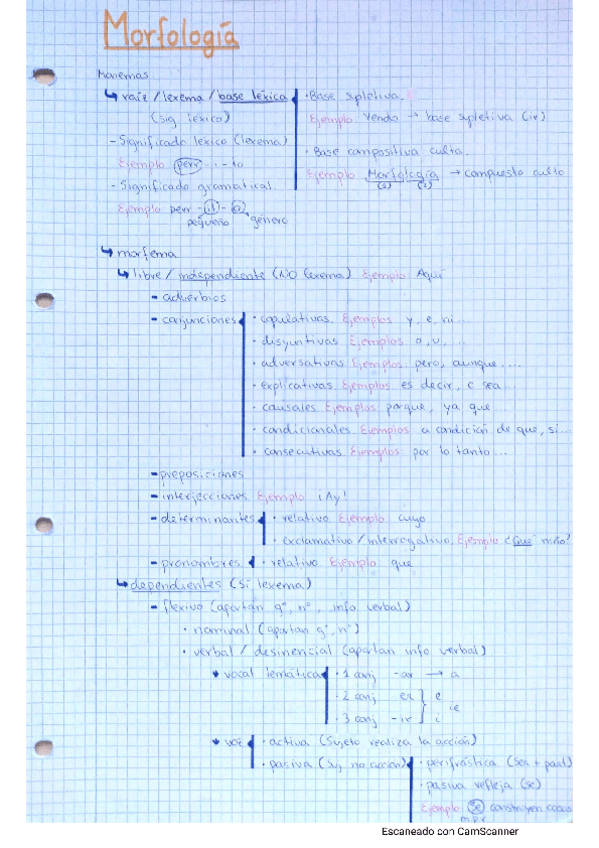 Morfología
Monemas
↳ raíz / lexema / base léxica
(sig léxico)
- Significado léxico (lexema)
Ejemplo perr - - to
- Significado gramatical
Ejemplo perr - it - o
pequeño género
· Base supletiva.
Ejemplo Vendo → base supletiva (ir)
· Base compositiva culta.
Ejemplo Morfología → compuesto culto
(1) (2)
↳ morfema
↳ libre / independiente (NO lexema) Ejemplo Aquí
- adverbios
- conjunciones
· copulativas. Ejemplos y, e, ni...
· disyuntivas Ejemplos o, u, ...
· adversativas Ejemplos pero, aunque...
· explicativas Ejemplos es decir, o sea...
· causales Ejemplos porque, ya que
· condicionales Ejemplos a condición de que, si...
· consecutivas Ejemplos por lo tanto...
- preposiciones
- interjecciones Ejemplo ¡Ay!
- determinantes
· relativo Ejemplo cuyo
· exclamativo / interrogativo. Ejemplo ¿Qué niño?
- pronombres · relativo Ejemplo que
↳ dependientes (sí lexema)
- flexivo (aportan gº, nº, info verbal)
· nominal (aportan gº, nº)
· verbal / desinencial (aportan info verbal)
* vocal temática
· 1 conj -ar → a
· 2 conj er } e
ie
· 3 conj -ir } i
* voz
· activa (Sujeto realiza la acción)
· pasiva (Suj no acción)
· perifrástica (ser + part)
· pasiva refleja (se)
Ejemplo Se construyen casas
m.p.r
Escaneado con CamScanner